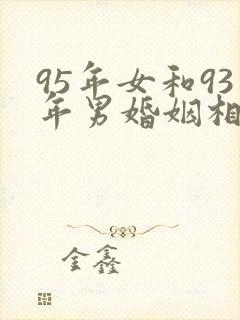 95年女和93
年男婚姻相
金鑫